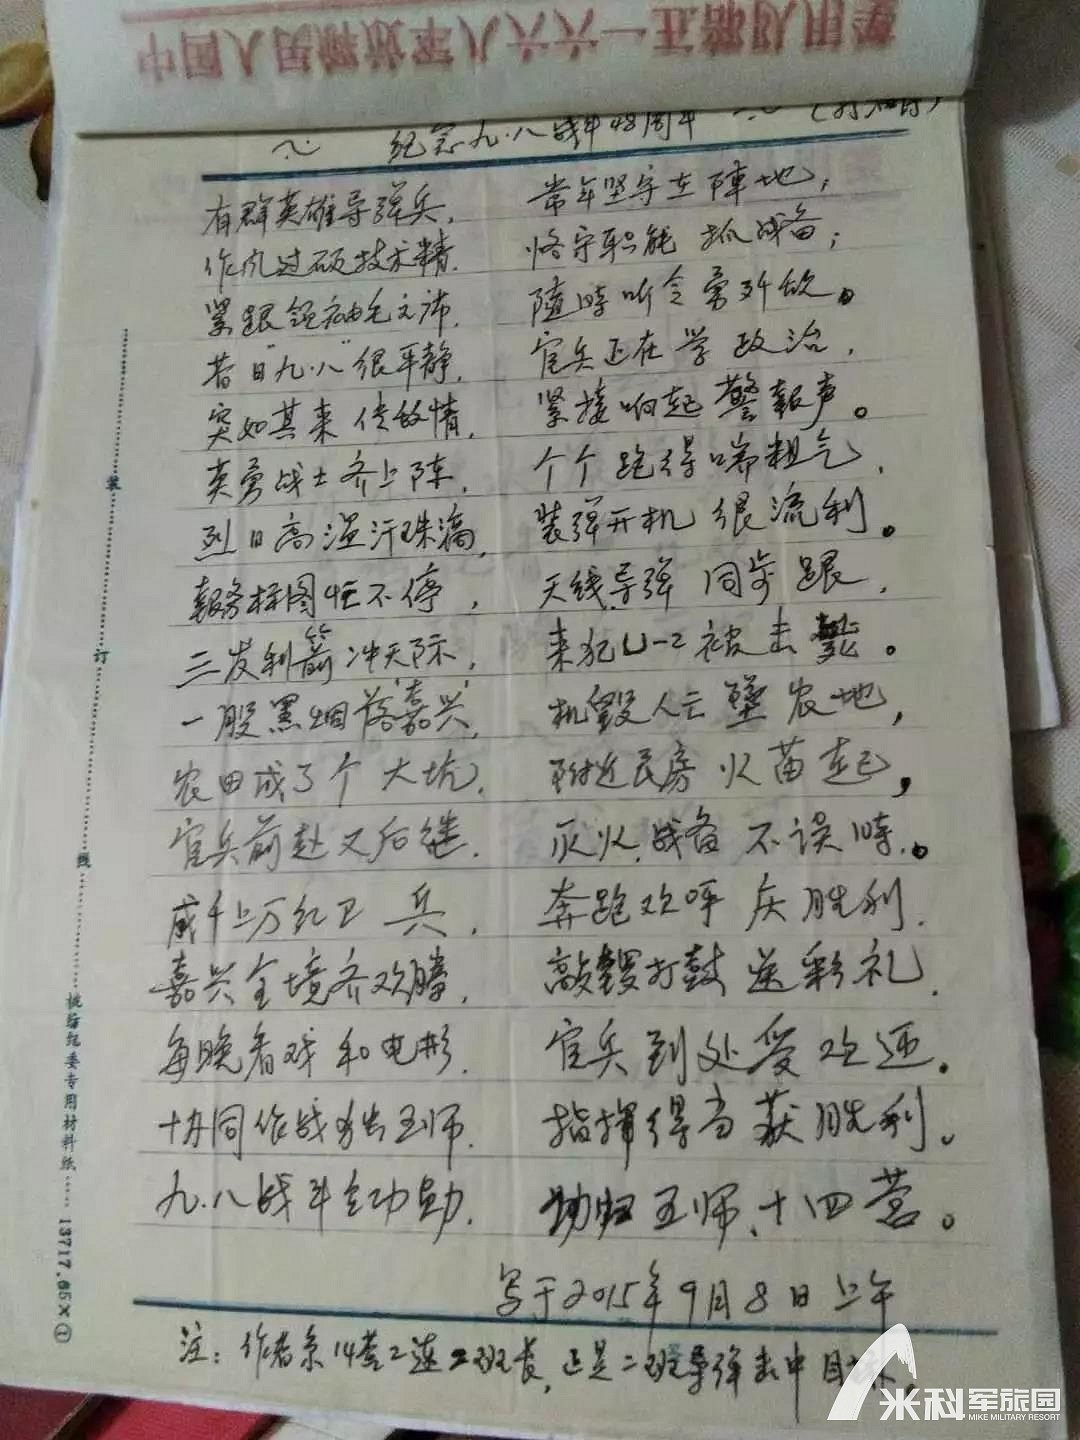 中国人民解放军六八六一部队信用笺
纪念九.八战斗48周年
有群英雄导弹兵, 常年坚守在陣地;
作风过硕技术精. 恪守职能 抓战备;
紧跟领袖毛主席. 随時听令勇歼敌。
昔日"九.八"很平静, 官兵正在学政治,
突如其来传敌情, 紧接响起警報声。
英勇战士齐上阵, 个个跑得喘粗气,
烈日高温汗珠滴, 装弹开机很流利。
報务标图忙不停, 天线,导弹同步跟,
三发利箭冲天际, 来犯U-2被击毙。
一股黑烟落"嘉兴", 机毁人亡墜农地,
农田成了个大坑, 附近民房火苗起,
官兵前赴又后继, 灭火,战备不误時。
成千上万红卫兵, 奔跑欢呼庆胜利.
嘉兴全境齐欢腾, 敲锣打鼓送彩礼.
每晚看戏和电影. 官兵到处受欢迎.
协同作战多出五师, 指挥得当获胜利。
九.八战斗立功勋. 功归五师、十四营。
写于2015年9月8日上午
注: 作者系14营二连二班长,正是二班导弹击中目标。
装 订 线
桃纺纪委专用材料纸 13717.65×①
米科军旅园
MIKE MILITARY RESORT